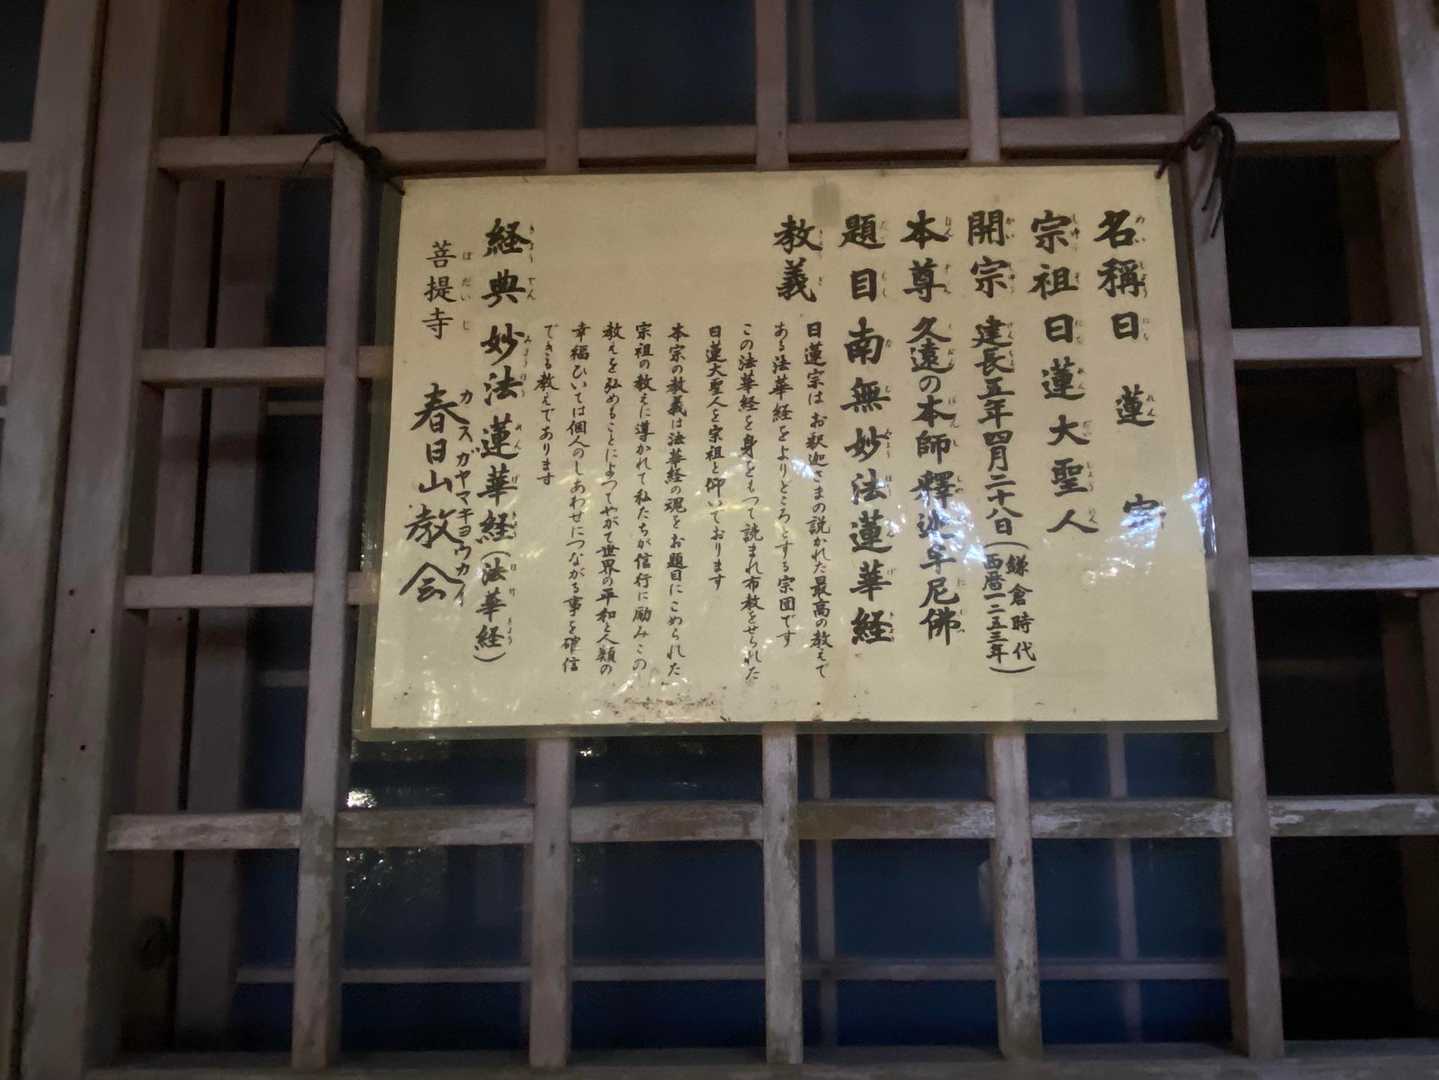 名稱 日蓮宗
宗祖 日蓮大聖人
開宗 建長五年四月二十八日(鎌倉時代 西暦一二五三年)
本尊 久遠の本師釋迦牟尼佛
題目 南無妙法蓮華経
教義
日蓮宗はお釈迦さまの説かれた最高の教えで
ある法華経をよりどころとする宗団です
この法華経を身をもって読まれ布教をせられた
日蓮大聖人を宗祖と仰いでおります
本宗の教義は法華経の魂をお題目にこめられた
宗祖の教えに導かれて私たちが信行に励みこの
教えを弘めることによってやがて世界の平和と人類の
幸福ひいては個人のしあわせにつながる事を確信
できる教えであります
経典 妙法蓮華経(法華経)
菩提寺 春日山教会
カスガヤマキョウカイ